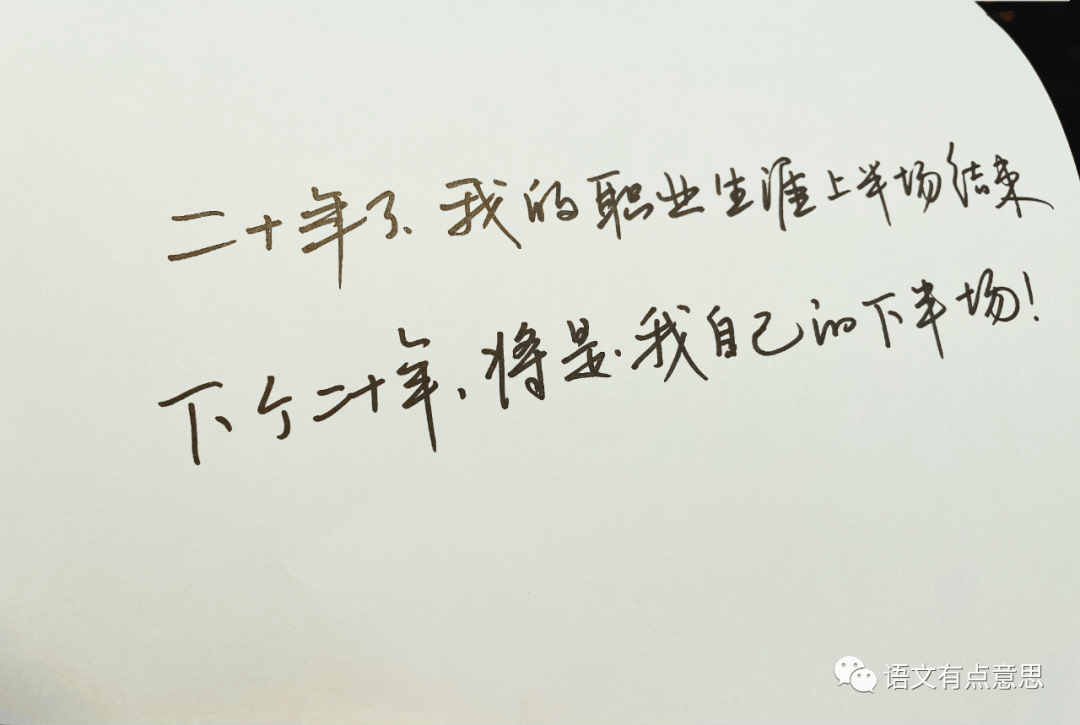 二十年了、我的职业生涯上半场结束
下个二十年、将是我自己的下半场！
语文有点意思